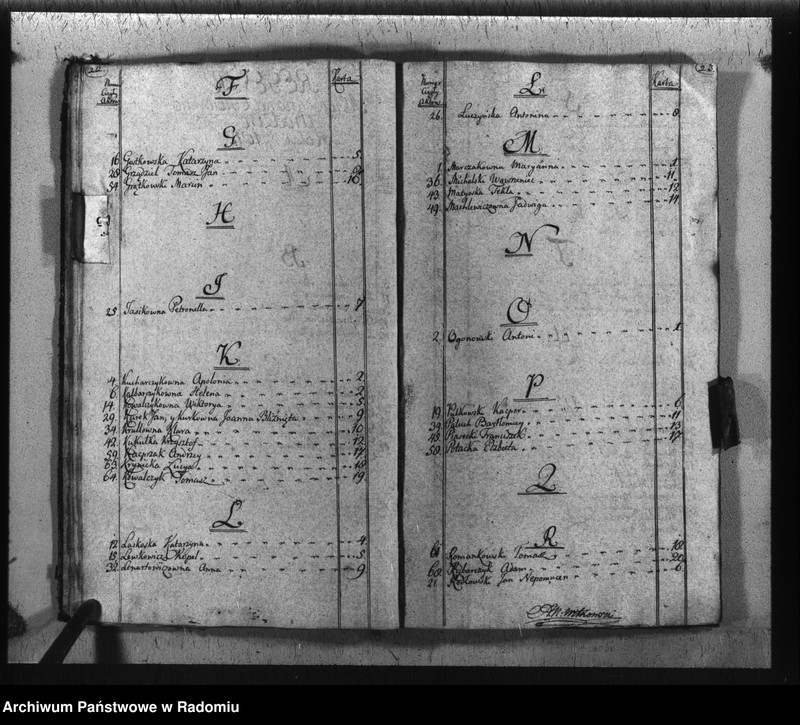 Karta
F
G
16. Gątkowska Katarzyna 5.
28. Grządziel Tomasz Jan 9
54. Grątkowski Marcin 16
H
I
25. Jasikowna Petronella 7
K
4. Kucharczykowna Apolonia 2
6. Kalbarzykowna Helena 2
14. Kowalczykowna Wiktorya 5
29. Kurek Jan, y Kurkowna Joanna Bliźnięta 9
34. Krullowna Klara 10
42. Kukułka Krzysztof 12
59. Kacprzak Andrzey 17
63. Krynicka Łucya 18
64. Kowalczyk Tomasz 19
L
12. Laskoska Katarzyna 4
15. Lewkowicz Kopel 5
32. Lenartowiczowna Anna 9
Numer
Ciągły
Aktów
Karta
Ł
26. Łuczyńska Antonina 8
M
1. Marczakowna Maryanna 1
36. Michalski Wawrzeniec 11
43. Matyoska Tekla 12
49. Machlewiczowna Jadwiga 14
N
O
2. Ogonowski Antoni 1
P
19. Pułkowski Kacper 6
39. Paluch Bartłomiey 11
48. Piasecki Franciszek 13
58. Potacka Elżbieta 17
Q
R
61. Romankowski Tomasz 18
68. Rybarczyk Adam 20
21. Kozłowski Jan Nepomucen 6
Archiwum Państwowe w Radomiu